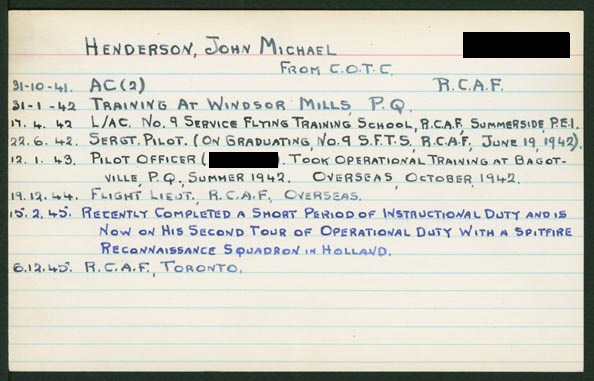 HENDERSON, JOHN MICHAEL
FROM C.O.T.C.
31-10-41. AC(2) R.C.A.F.
31-1-42 TRAINING AT WINDSOR MILLS, P.Q.
17. 4. 42 L/AC. NO. 9 SERVICE FLYING TRAINING SCHOOL, R.C.A.F., SUMMERSIDE, P.E.I.
22. 6. 42. SERGT. PILOT. (ON GRADUATING, NO. 9 S.F.T.S, R.C.A.F., JUNE 19, 1942).
12. 1. 43. PILOT OFFICER ( ). TOOK OPERATIONAL TRAINING AT BAGOT-
VILLE, P.Q., SUMMER 1942. OVERSEAS, OCTOBER, 1942.
19. 12. 44. FLIGHT LIEUT., R.C.A.F., OVERSEAS.
15. 2. 45. RECENTLY COMPLETED A SHORT PERIOD OF INSTRUCTIONAL DUTY AND IS
NOW ON HIS SECOND TOUR OF OPERATIONAL DUTY WITH A SPITFIRE
RECONNAISSANCE SQUADRON IN HOLLAND.
6. 12. 45. R.C.A.F., TORONTO.